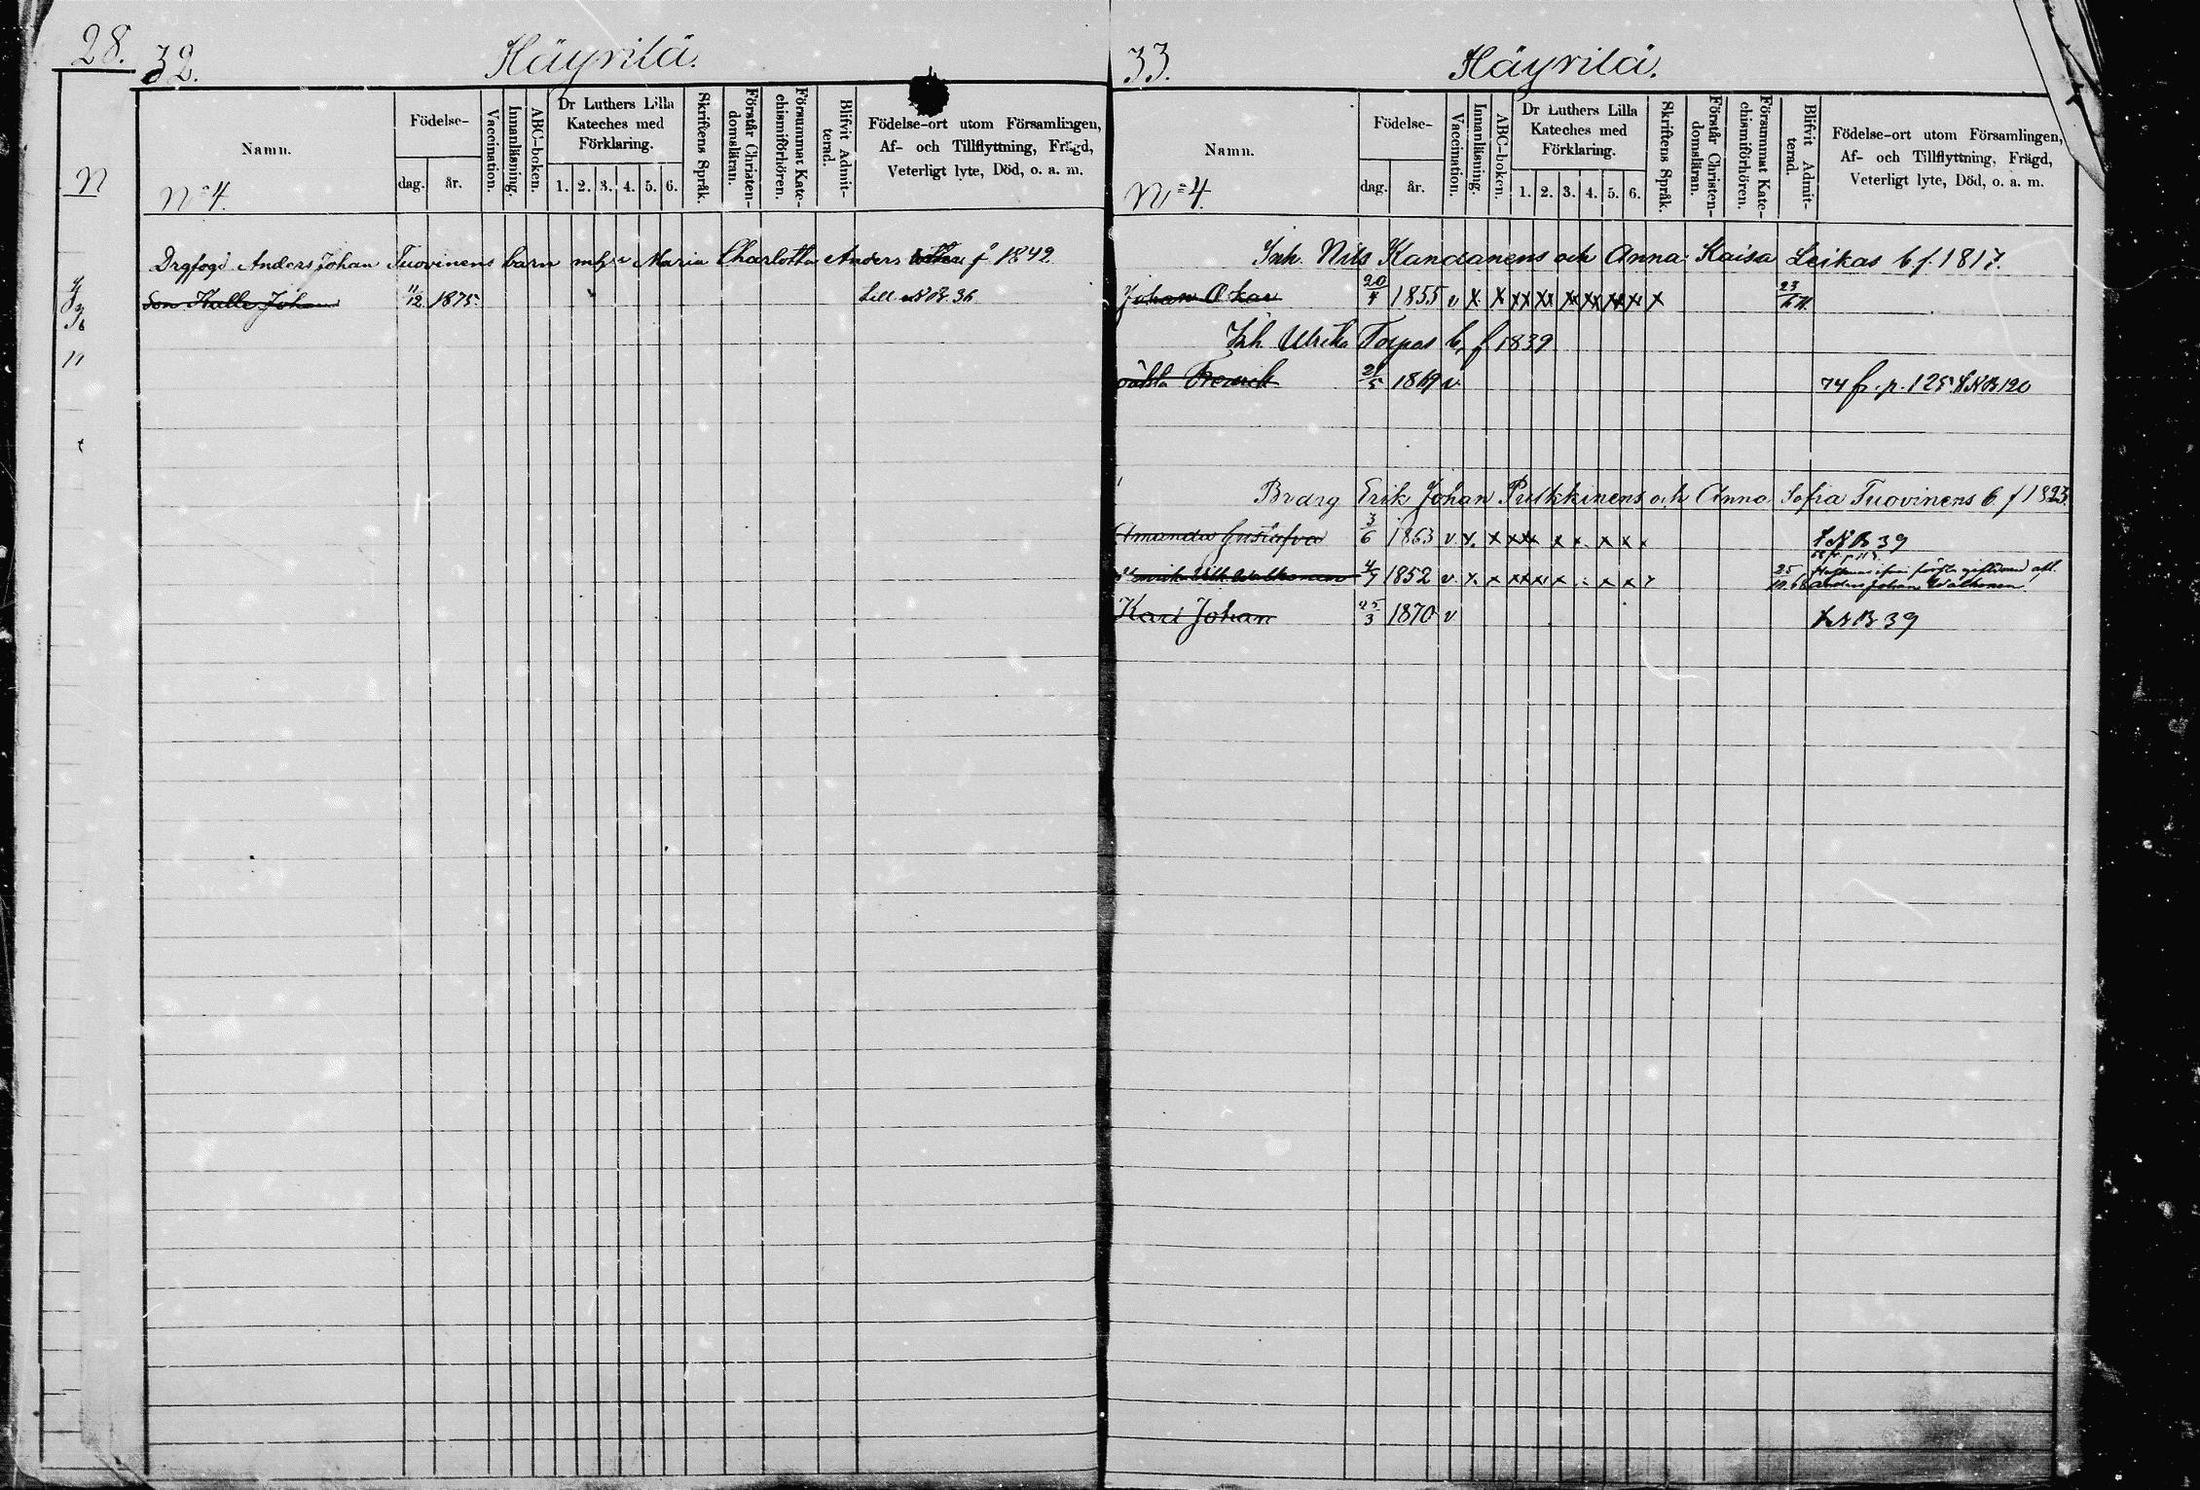 28.
N
32.
Häyrilä.
Namn.
Födelse-
dag. år.
Vaccination.
Innanläsning.
ABC-boken.
Dr Luthers Lilla Kateches med Förklaring.
1. 2. 3. 4. 5. 6.
Skriftens Språk.
Förstår Christendomsläran.
Försummat Katechismiförhören.
Blifvit Admitterad.
Födelse-ort utom Församlingen,
Af- och Tillflyttning, Frägd,
Veterligt lyte, Död, o. a. m.
No 4.
Drgfogd Anders Johan Tuovinens barn m h u Maria Charlotta Anders f 1842
Son Kalle Johan 11/12 1875 till NB. 36
33.
Häyrilä.
Namn.
Födelse-
dag. år.
Vaccination.
Innanläsning.
ABC-boken.
Dr Luthers Lilla Kateches med Förklaring.
1. 2. 3. 4. 5. 6.
Skriftens Språk.
Förstår Christendomsläran.
Försummat Katechismiförhören.
Blifvit Admitterad.
Födelse-ort utom Församlingen,
Af- och Tillflyttning, Frägd,
Veterligt lyte, Död, o. a. m.
No 4.
Inh. Nils Kandanens och Anna Kaisa Leikas b f. 1817.
Johan Oskar 20/4 1855 v x x xx xx xx xx xx x x
Inh Ulrika Torpas b, f 1839
oäkta Fredrik 21/5 1869 v. 74 fr. p. 125 t NB 120
Bvdrg Erik Johan Pulkkinens och Anna Sofia Tuovinens b f 1823.
Amanda Gustafva 3/6 1863 v. x. x xxx x x. x x x t NB 39
4/7 1852 v. x. x xxx x x x x 25 Anders Johan Walkonen
Karl Johan 25/3 1870 v t NB 39